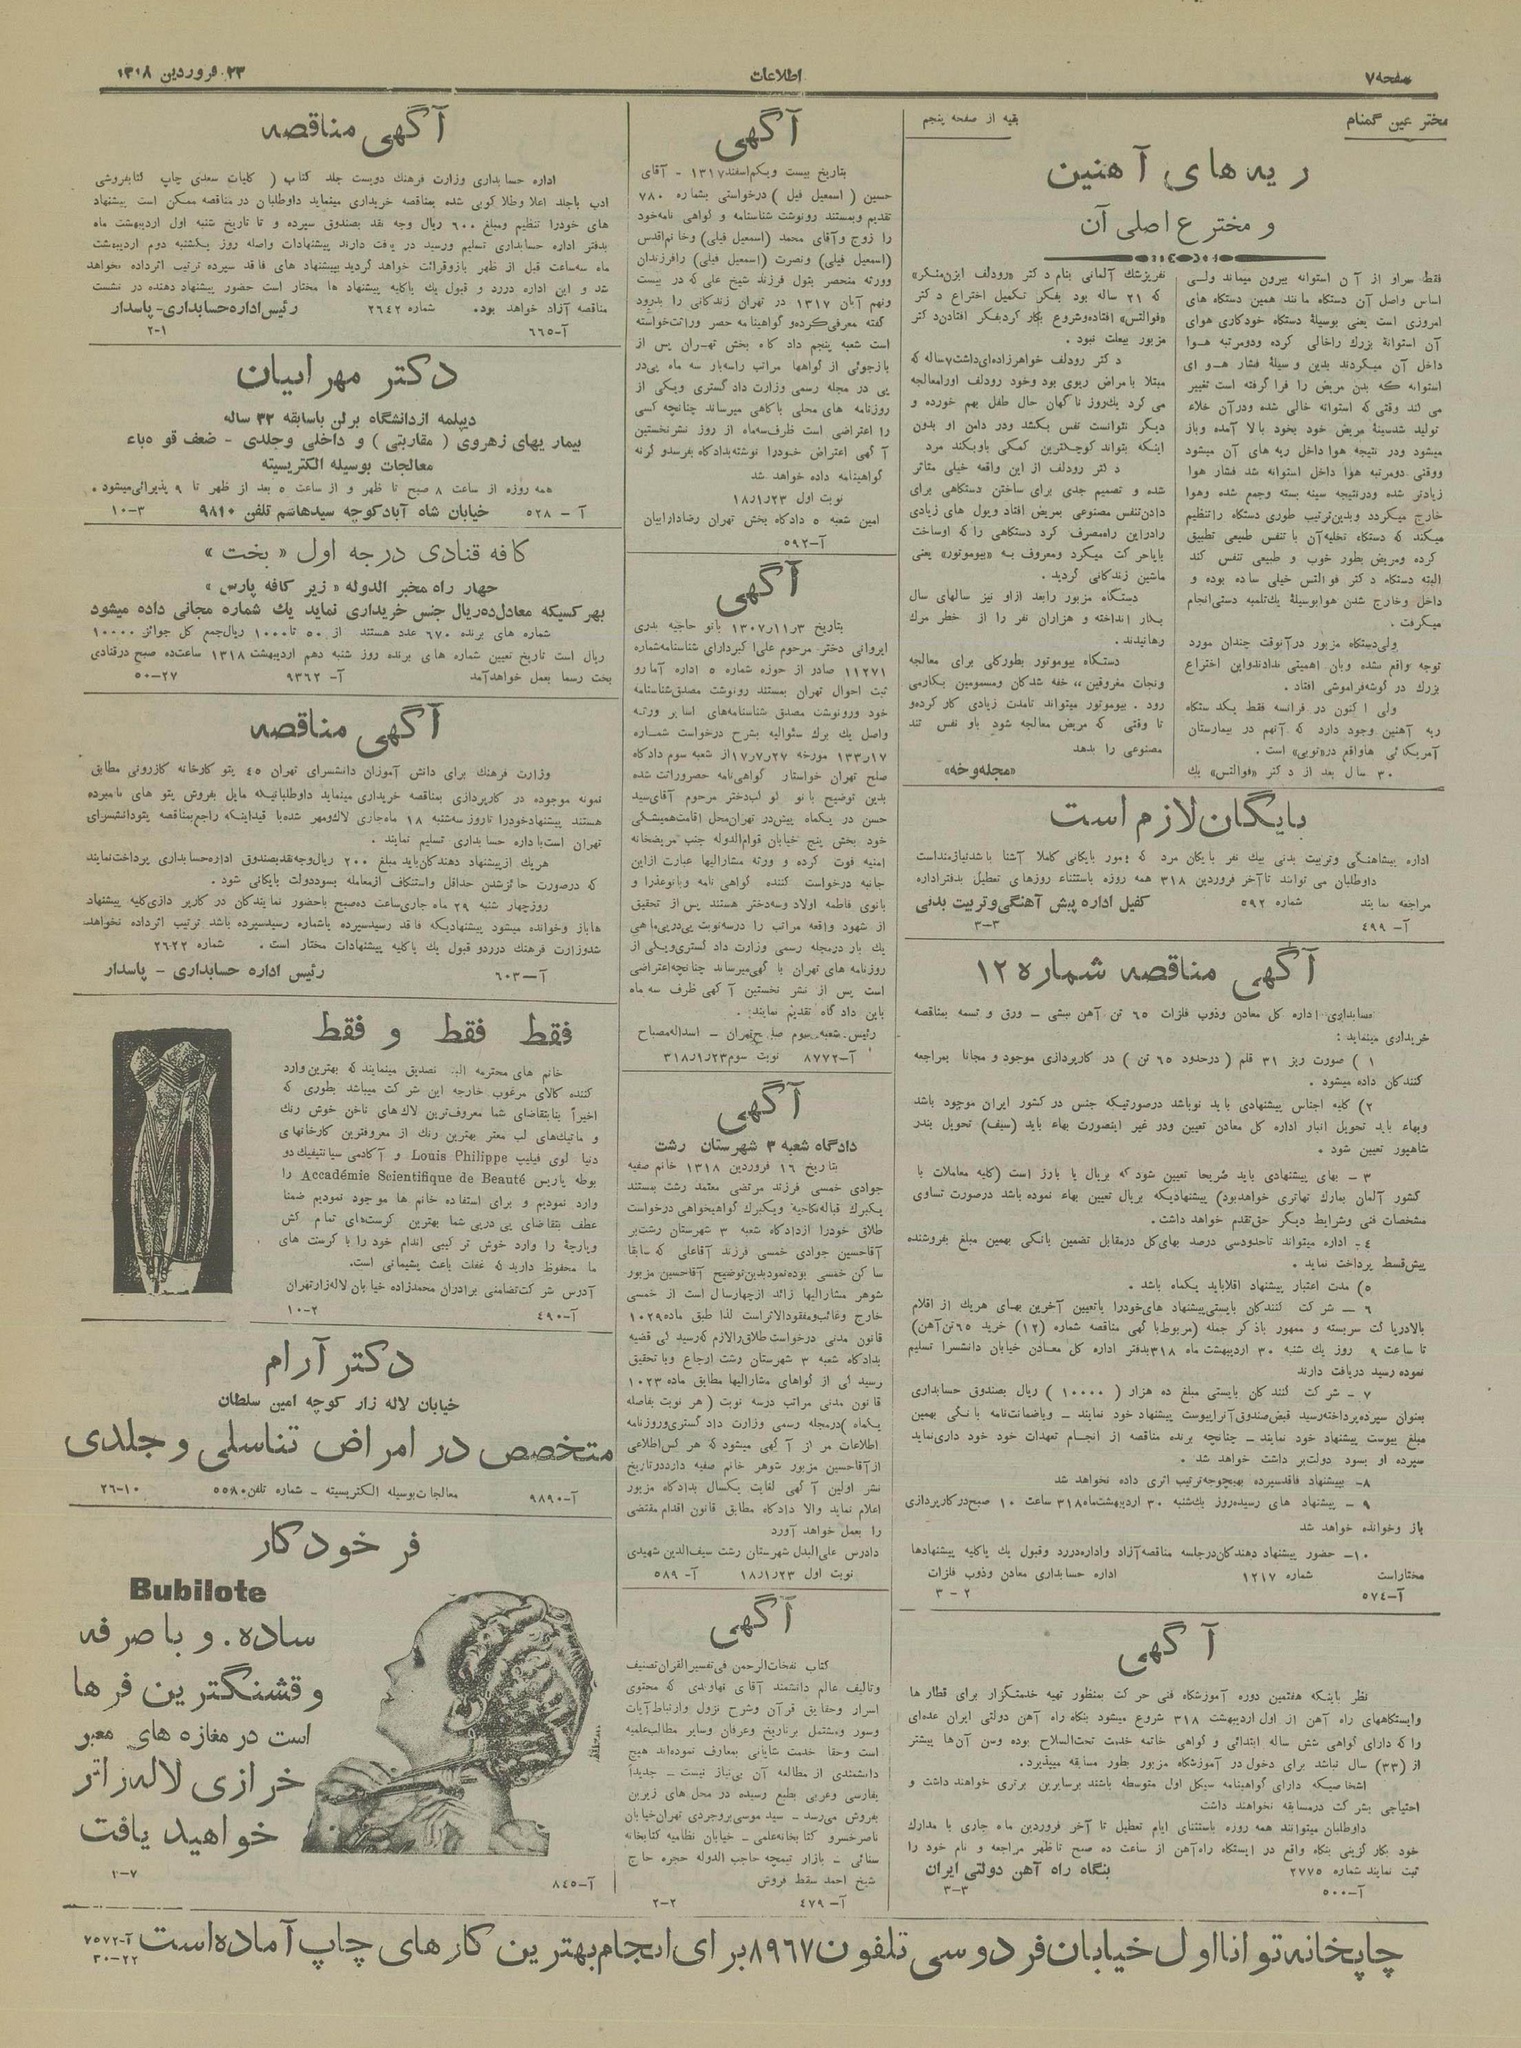 صفحه ۷
اطلاعات
۲۳ فروردین ۱۳۱۸
مخترعین گمنام
بقیه از صفحه پنجم
ریه های آهنین
و مخترع اصلی آن
فقط سر او از آن استوانه بیرون میماند ولی
اساس و اصل آن دستگاه مانند همین دستگاه های
امروزی است یعنی بوسیلهٔ دستگاه خودکاری هوای
آن استوانهٔ بزرگ را خالی کرده و دومرتبه هوا
داخل آن میکردند بدین وسیلهٔ فشار هوای
استوانه که بدن مریض را فرا گرفته است تغییر
می کند وقتی که استوانه خالی شده و در آن خلاء
تولید شد سینهٔ مریض خود بخود بالا آمده و باز
میشود و در نتیجه هوا داخل ریه های آن میشود
و وقتی دومرتبه هوا داخل استوانه شد فشار هوا
زیادتر شده و در نتیجه سینه بسته و جمع شده و هوا
خارج میگردد و بدین ترتیب طوری دستگاه را تنظیم
میکند که دستگاه تخلیه آن با تنفس طبیعی تطبیق
کرده و مریض بطور خوب و طبیعی تنفس کند
البته دستگاه دکتر فوالتس خیلی ساده بوده و
داخل و خارج شدن هوا بوسیلهٔ یک تلمبه دستی انجام
میگرفت .
ولی دستگاه مزبور در آنوقت چندان مورد
توجه واقع نشده و بان اهمیتی ندادند و این اختراع
بزرگ در گوشه فراموشی افتاد .
ولی اکنون در فرانسه فقط یک دستگاه
ریه آهنین وجود دارد که آنهم در بیمارستان
آمریکائی ها واقع در «نویی» است .
۳۰ سال بعد از دکتر «فوالتس» یک
نفر پزشک آلمانی بنام دکتر «رودلف ایزن منگر»
که ۲۱ ساله بود بفکر تکمیل اختراع دکتر
«فوالتس» افتاده و شروع بکار کرد بفکر افتادن دکتر
مزبور بیعلت نبود .
دکتر رودلف خواهرزاده ای داشت ۷ ساله که
مبتلا بامراض ریوی بود و خود رودلف او را معالجه
می کرد یکروز ناگهان حال طفل بهم خورده و
دیگر نتوانست نفس بکشد و در دامن او بدون
اینکه بتواند کوچکترین کمکی باو بکند مرد
دکتر رودلف از این واقعه خیلی متأثر
شده و تصمیم جدی برای ساختن دستگاهی برای
دادن تنفس مصنوعی بمریض افتاد و پول های زیادی
را در این راه مصرف کرد دستگاهی را که او ساخت
با یا حرکت میکرد و معروف به «بیوموتور» یعنی
ماشین زندگانی گردید .
دستگاه مزبور را بعد از او نیز سالهای سال
بکار انداخته و هزاران نفر را از خطر مرگ
رهانیدند .
دستگاه بیوموتور بطور کلی برای معالجه
و نجات مغروقین ،، خفه شدگان و مسمومین بکار می
رود . بیوموتور میتواند تا مدت زیادی کار کرده و
تا وقتی که مریض معالجه شود باو نفس تند
مصنوعی را بدهد
«مجله وخه»
بایگان لازم است
اداره پیشاهنگی و تربیت بدنی بیک نفر بایگان مرد که بامور بایگانی کاملا آشنا باشد نیازمند است
داوطلبان می توانند تا آخر فروردین ۳۱۸ همه روزه باستثناء روزهای تعطیل بدفتر اداره
مراجعه نمایند شماره ۵۹۲ کفیل اداره پیش آهنگی و تربیت بدنی
آ- ۴۹۹ ۳-۳
آگهی مناقصه شماره ۱۲
حسابداری اداره کل معادن و ذوب فلزات ۶۵ تن آهن نبشی - ورق و تسمه بمناقصه
خریداری مینماید :
۱ ) صورت ریز ۳۱ قلم ( در حدود ۶۵ تن ) در کارپردازی موجود و مجانا بمراجعه
کنندگان داده میشود .
۲) کلیه اجناس پیشنهادی باید نو باشد در صورتیکه جنس در کشور ایران موجود باشد
و بهاء باید تحویل انبار اداره کل معادن تعیین و در غیر اینصورت بهاء باید (سیف) تحویل بندر
شاهپور تعیین شود .
۳ - بهای پیشنهادی باید صریحا تعیین شود که بریال یا بارز است (کلیه معاملات با
کشور آلمان بمارک تهاتری خواهد بود) پیشنهادیکه بریال تعیین بهاء نموده باشد در صورت تساوی
مشخصات فنی و شرایط دیگر حق تقدم خواهد داشت .
۴ - اداره میتواند تا حدود سی درصد بهای کل در مقابل تضمین بانکی بهمین مبلغ بفروشنده
پیش قسط پرداخت نماید .
۵) مدت اعتبار پیشنهاد اقلا باید یکماه باشد .
۶ - شرکت کنندگان بایستی پیشنهاد های خود را با تعیین آخرین بهای هریک از اقلام
بالا در پاکت سربسته و ممهور با ذکر جمله (مربوط بآگهی مناقصه شماره (۱۲) خرید ۶۵ تن آهن)
تا ساعت ۹ روز یک شنبه ۳۰ اردیبهشت ماه ۳۱۸ بدفتر اداره کل معادن خیابان دانشسرا تسلیم
نموده رسید دریافت دارند
۷ - شرکت کنندگان بایستی مبلغ ده هزار ( ۱۰۰۰۰ ) ریال بصندوق حسابداری
بعنوان سپرده پرداخته رسید قبض صندوق آنرا پیوست پیشنهاد خود نمایند - و یا ضمانت نامه بانکی بهمین
مبلغ پیوست پیشنهاد خود نمایند - چنانچه برنده مناقصه از انجام تعهدات خود خود داری نماید
سپرده او بسود دولت برداشت خواهد شد .
۸ - بپیشنهاد فاقد سپرده بهیچوجه ترتیب اثری داده نخواهد شد
۹ - پیشنهاد های رسیده روز یکشنبه ۳۰ اردیبهشت ماه ۳۱۸ ساعت ۱۰ صبح در کارپردازی
باز و خوانده خواهد شد
۱۰ - حضور پیشنهاد دهندگان در جلسه مناقصه آزاد و اداره در رد و قبول یک یا کلیه پیشنهادها
مختار است شماره ۱۲۱۷ اداره حسابداری معادن و ذوب فلزات
آ-۵۷۴ ۲ - ۳
آگهی
نظر باینکه هفتمین دوره آموزشگاه فنی حرکت بمنظور تهیه خدمتگزار برای قطار ها
و ایستگاههای راه آهن از اول اردیبهشت ۳۱۸ شروع میشود بنگاه راه آهن دولتی ایران عده ای
را که دارای گواهی شش ساله ابتدائی و گواهی خاتمه خدمت تحت السلاح بوده و سن آن ها بیشتر
از (۳۳) سال نباشد برای دخول در آموزشگاه مزبور بطور مسابقه میپذیرد .
اشخاصیکه دارای گواهینامه سیکل اول متوسطه باشند برسایرین برتری خواهند داشت و
احتیاجی بشرکت در مسابقه نخواهند داشت
داوطلبان میتوانند همه روزه باستثنای ایام تعطیل تا آخر فروردین ماه جاری با مدارک
خود بکارگزینی بنگاه واقع در ایستگاه راه آهن از ساعت ده صبح تا ظهر مراجعه و نام خود را
ثبت نمایند شماره ۲۷۷۵ بنگاه راه آهن دولتی ایران
آ-۵۰۰ ۳-۳
آگهی
بتاریخ بیست و یکم اسفند ۱۳۱۷ - آقای
حسین ( اسمعیل فیل ) درخواستی بشماره ۷۸۰
تقدیم و بمستند رونوشت شناسنامه و گواهی نامه خود
را زوج و آقای محمد (اسمعیل فیلی) و خانم اقدس
(اسمعیل فیلی) و نصرت (اسمعیل فیلی) را فرزندان
و ورثه منحصر بتول فرزند شیخ علی که در بیست
و نهم آبان ۱۳۱۷ در تهران زندگانی را بدرود
گفته معرفی کرده و گواهینامه حصر وراثت خواسته
است شعبه پنجم دادگاه بخش تهران پس از
بازجوئی از گواهها مراتب را سه بار سه ماه پی در
پی در مجله رسمی وزارت دادگستری و یکی از
روزنامه های محلی بآگاهی میرساند چنانچه کسی
را اعتراضی است ظرف سه ماه از روز نشر نخستین
آگهی اعتراض خود را نوشته بدادگاه بفرستد و گرنه
گواهینامه داده خواهد شد
نوبت اول ۱۸/۱/۲۳
امین شعبه ۵ دادگاه بخش تهران رضا دارابیان
آ-۵۹۲
آگهی
بتاریخ ۱۳۰۷/۱۱/۳ بانو حاجیه بدری
ایروانی دختر مرحوم علی اکبر دارای شناسنامه شماره
۱۱۲۷۱ صادر از حوزه شماره ۵ اداره آمار و
ثبت احوال تهران بمستند رونوشت مصدق شناسنامه
خود و رونوشت مصدق شناسنامه های سایر ورثه
و اصل یک برگ سئوالیه بشرح درخواست شماره
۱۳۳/۱۷ مورخه ۱۷/۷/۲۷ از شعبه سوم دادگاه
صلح تهران خواستار گواهی نامه حصر وراثت شده
بدین توضیح بانو لولب دختر مرحوم آقای سید
حسن در یکماه پیش در تهران محل اقامت همیشگی
خود بخش پنج خیابان قوام الدوله جنب مریضخانه
امنیه فوت کرده و ورثه مشارالیها عبارت از این
جانبه درخواست کننده گواهی نامه و بانو عذرا و
بانوی فاطمه اولاد و سه دختر هستند پس از تحقیق
از شهود واقعه مراتب را در سه نوبت پی در پی ماهی
یک بار در مجله رسمی وزارت دادگستری و یکی از
روزنامه های تهران بآگهی میرساند چنانچه اعتراضی
است پس از نشر نخستین آگهی ظرف سه ماه
باین دادگاه تقدیم نمایند .
رئیس شعبه سوم صلح تهران - اسداله مصباح
آ-۸۷۷۲ نوبت سوم ۳۱۸/۱/۲۳
آگهی
دادگاه شعبه ۳ شهرستان رشت
بتاریخ ۱۶ فروردین ۱۳۱۸ خانم صفیه
جوادی خمسی فرزند مرتضی معتمد رشت بمستند
یکبرگ قباله نکاحیه و یکبرگ گواهیخواهی درخواست
طلاق خود را از دادگاه شعبه ۳ شهرستان رشت بر
آقا حسین جوادی خمسی فرزند آقا علی که سابقا
ساکن خمسی بوده نمود بدین توضیح آقا حسین مزبور
شوهر مشارالیها زائد از چهار سال است از خمسی
خارج و غائب و مفقود الاثر است لذا طبق ماده ۱۰۲۹
قانون مدنی درخواست طلاق را لازم که رسیدگی قضیه
بدادگاه شعبه ۳ شهرستان رشت ارجاع و با تحقیق
رسیدگی از گواهای مشارالیها مطابق ماده ۱۰۲۳
قانون مدنی مراتب در سه نوبت ( هر نوبت بفاصله
یکماه ) در مجله رسمی وزارت دادگستری و روزنامه
اطلاعات مرکز آگهی میشود که هر کس اطلاعی
از آقا حسین مزبور شوهر خانم صفیه دارد و تاریخ
نشر اولین آگهی لغایت یکسال بدادگاه مزبور
اعلام نماید والا دادگاه مطابق قانون اقدام مقتضی
را بعمل خواهد آورد
دادرس علی البدل شهرستان رشت سیف الدین شهیدی
نوبت اول ۱۸/۱/۲۳ آ- ۵۸۹
آگهی
کتاب نفحات الرحمن فی تفسیر القران تصنیف
و تألیف عالم دانشمند آقای نهاوندی که محتوی
اسرار و حقایق قرآن و شرح نزول و ارتباط آیات
و سور و مشتمل بر تاریخ و عرفان و سایر مطالب علمیه
است و حقا خدمت شایانی بمعارف نموده اند هیچ
دانشمندی از مطالعه آن بی نیاز نیست - جدیداً
بفارسی و عربی بطبع رسیده در محل های زیرین
بفروش می رسد - سید موسی بروجردی تهران خیابان
ناصر خسرو کتابخانه علمی - خیابان نظامیه کتابخانه
سنائی - بازار تیمچه حاجب الدوله حجره حاج
شیخ احمد سقط فروش
آ- ۴۷۹ ۲-۲
آگهی مناقصه
اداره حسابداری وزارت فرهنگ دویست جلد کتاب ( کلیات سعدی چاپ کتابفروشی
ادب با جلد اعلا و طلا کوبی شده بمناقصه خریداری مینماید داوطلبان در مناقصه ممکن است پیشنهاد
های خود را تنظیم و مبلغ ۶۰۰ ریال وجه نقد بصندوق سپرده و تا تاریخ شنبه اول اردیبهشت ماه
بدفتر اداره حسابداری تسلیم و رسید دریافت دارند پیشنهادات واصله روز یکشنبه دوم اردیبهشت
ماه سه ساعت قبل از ظهر باز و قرائت خواهد گردید بپیشنهاد های فاقد سپرده ترتیب اثر داده نخواهد
شد و این اداره در رد و قبول یک یا کلیه پیشنهاد ها مختار است حضور پیشنهاد دهنده در نشست
مناقصه آزاد خواهد بود. شماره ۲۶۴۲ رئیس اداره حسابداری - پاسدار
آ-۶۶۵ ۲-۱
دکتر مهرابیان
دیپلمه از دانشگاه برلن با سابقه ۳۲ ساله
بیماریهای زهروی ( مقاربتی ) و داخلی و جلدی - ضعف قوه باء
معالجات بوسیله الکتریسیته
همه روزه از ساعت ۸ صبح تا ظهر و از ساعت ۵ بعد از ظهر تا ۹ پذیرائی میشود .
آ - ۵۲۸ خیابان شاه آباد کوچه سید هاشم تلفن ۹۸۱۰ ۱۰-۳
کافه قنادی درجه اول « بخت »
چهار راه مخبر الدوله « زیر کافه پارس »
بهر کسیکه معادل ده ریال جنس خریداری نماید یک شماره مجانی داده میشود
شماره های برنده ۶۷۰ عدد هستند از ۵۰ تا ۱۰۰۰ ریال جمع کل جوائز ۱۰۰۰۰
ریال است تاریخ تعیین شماره های برنده روز شنبه دهم اردیبهشت ۱۳۱۸ ساعت ده صبح در قنادی
بخت رسما بعمل خواهد آمد آ- ۹۳۶۲ ۵۰-۲۷
آگهی مناقصه
وزارت فرهنگ برای دانش آموزان دانشسرای تهران ۴۵ پتو کارخانه کازرونی مطابق
نمونه موجوده در کارپردازی بمناقصه خریداری مینماید داوطلبانیکه مایل بفروش پتو های نامبرده
هستند پیشنهاد خود را تا روز سه شنبه ۱۸ ماه جاری لاک و مهر شده با قید اینکه راجع بمناقصه پتو دانشسرای
تهران است باداره حسابداری تسلیم نمایند .
هریک از پیشنهاد دهندگان باید مبلغ ۲۰۰ ریال وجه نقد بصندوق اداره حسابداری پرداخت نمایند
که در صورت حائز شدن حداقل و استنکاف از معامله بسود دولت بایگانی شود .
روز چهارشنبه ۲۹ ماه جاری ساعت ده صبح با حضور نمایندگان در کارپردازی کلیه پیشنهاد
ها باز و خوانده میشود پیشنهادیکه فاقد رسید سپرده یا شماره رسید سپرده باشد ترتیب اثر داده نخواهد
شد وزارت فرهنگ در رد و قبول یک یا کلیه پیشنهادات مختار است . شماره ۲۶۲۲
آ-۶۰۳ رئیس اداره حسابداری - پاسدار
فقط فقط و فقط
خانم های محترمه البته تصدیق مینمایند که بهترین وارد
کننده کالای مرغوب خارجه این شرکت میباشد بطوری که
اخیراً بنا بتقاضای شما معروفترین لاک های ناخن خوش رنگ
و ماتیک های لب معتبر بهترین رنگ از معروفترین کارخانهای
دنیا لوی فیلیپ Louis Philippe و آکادمی سیانتیفیک دو
بوطه پاریس Accadémie Scientifique de Beauté را
وارد نمودیم و برای استفاده خانم ها موجود نمودیم ضمنا
عطف بتقاضای پی در پی شما بهترین کرست های تمام کش
و پارچهٔ را وارد خوش ترکیبی اندام خود را با کرست های
ما محفوظ دارید که غفلت باعث پشیمانی است.
آدرس شرکت تضامنی برادران محمدزاده خیابان لاله زار تهران
آ-۴۹۰ ۱۰-۲
دکتر آرام
خیابان لاله زار کوچه امین سلطان
متخصص در امراض تناسلی و جلدی
آ-۹۸۹۰ معالجات بوسیله الکتریسیته - شماره تلفن ۵۵۸۰ ۲۶-۱۰
فر خودکار
Bubilote
ساده. و با صرفه
و قشنگترین فر ها
است در مغازه های معبر
خرازی لاله زار تر
خواهید یافت
آ-۸۴۵ ۱-۷
چاپخانه توانا اول خیابان فردوسی تلفون ۸۹۶۷ برای انجام بهترین کارهای چاپ آماده است
آ-۷۵۷۲
۳۰-۲۲